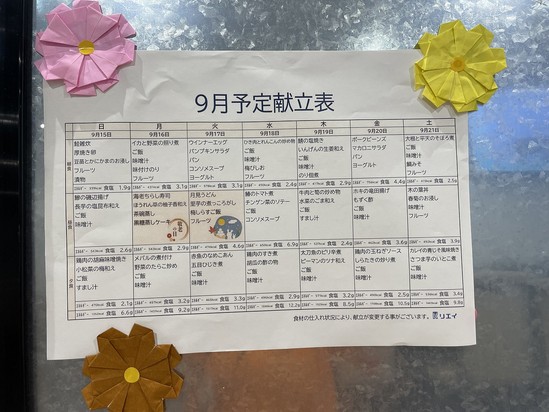 9月予定献立表
日 月 火 水 木 金 土
9月15日 9月16日 9月17日 9月18日 9月19日 9月20日 9月21日
鮭雑炊
厚焼き卵
豆苗とかにかまのお浸し
フルーツ
漬物
イカと野菜の照り煮
ご飯
味噌汁
味付けのり
フルーツ
ウインナーエッグ
パンプキンサラダ
パン
コンソメスープ
ヨーグルト
ひき肉とれんこんの炒め物
ご飯
味噌汁
梅びしお
フルーツ
鯖の塩焼き
いんげんの生姜和え
ご飯
味噌汁
のり佃煮
ポークビーンズ
マカロニサラダ
パン
ヨーグルト
大根と平天のそぼろ煮
ご飯
味噌汁
鯛みそ
フルーツ
食塩 1.9g
食塩 3.1g
食塩 3.3g
食塩 2.9g
食塩 4.4g
食塩 2.5g
鯵の磯辺揚げ
長芋の塩昆布和え
ご飯
味噌汁
海老ちらし寿司
ほうれん草の柚子香和え
茶碗蒸し
黒糖蒸しケーキ
月見うどん
里芋の煮っころがし
梅しらすご飯
フルーツ
鯖のトマト煮
チンゲン菜のソテー
ご飯
コンソメスープ
牛肉と筍の炒め物
水菜のごま和え
ご飯
すまし汁
ホキの竜田揚げ
もずく酢
ご飯
味噌汁
木の葉丼
春菊のお浸し
味噌汁
フルーツ
食塩 2.6g
食塩 4.6g
食塩 6.9g
鶏肉の胡麻味噌焼き
小松菜の梅和え
ご飯
すまし汁
メバルの煮付け
野菜のたらこ炒め
ご飯
味噌汁
赤魚のなめこあん
五目ひじき煮
ご飯
味噌汁
鶏肉のすき煮
胡瓜の酢の物
ご飯
味噌汁
太刀魚のピリ辛煮
ピーマンのツナ和え
ご飯
味噌汁
鶏肉の玉ねぎソース
しらたきの炒り煮
ご飯
味噌汁
カレイの青じそ風味焼き
さつま芋のいとこ煮
ご飯
味噌汁
食塩 2.1g
食塩 3.2g
食塩 3.1g
食塩 3.2g
食塩 2.5g
食塩 3.4g
食塩 6.6g
食塩 9.2g
食塩 11.0g
食塩 12.2g
食塩 8.5g
食塩 10.5g
食塩 9.8g
食材の仕入れ状況により、献立が変更する事がございます。 リエイ